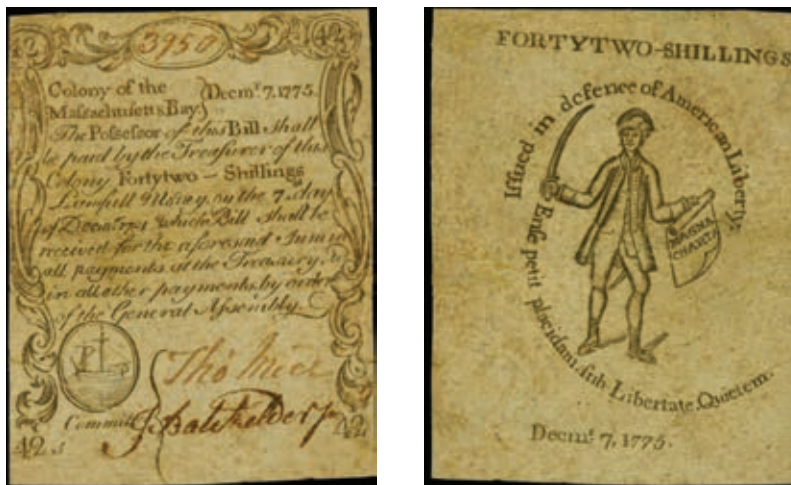 42 3950 42
Colony of the
Massachusetts Bay. Decmr. 7, 1775.
The Possessor of this Bill shall
be paid by the Treasurer of this
Colony Fortytwo - Shillings
Lawfull Money, on the 7 day
of Decmr. which Bill shall be
received for the aforesaid Sum in
all payments at the Treasury, &
in all other payments by order
of the General Assembly
42s Committ 42
FORTYTWO-SHILLINGS
Issued in defence of American Liberty
MAGNA
CHARTA
Ense petit placidam, sub Libertate Quietem.
Decmr. 7, 1775.